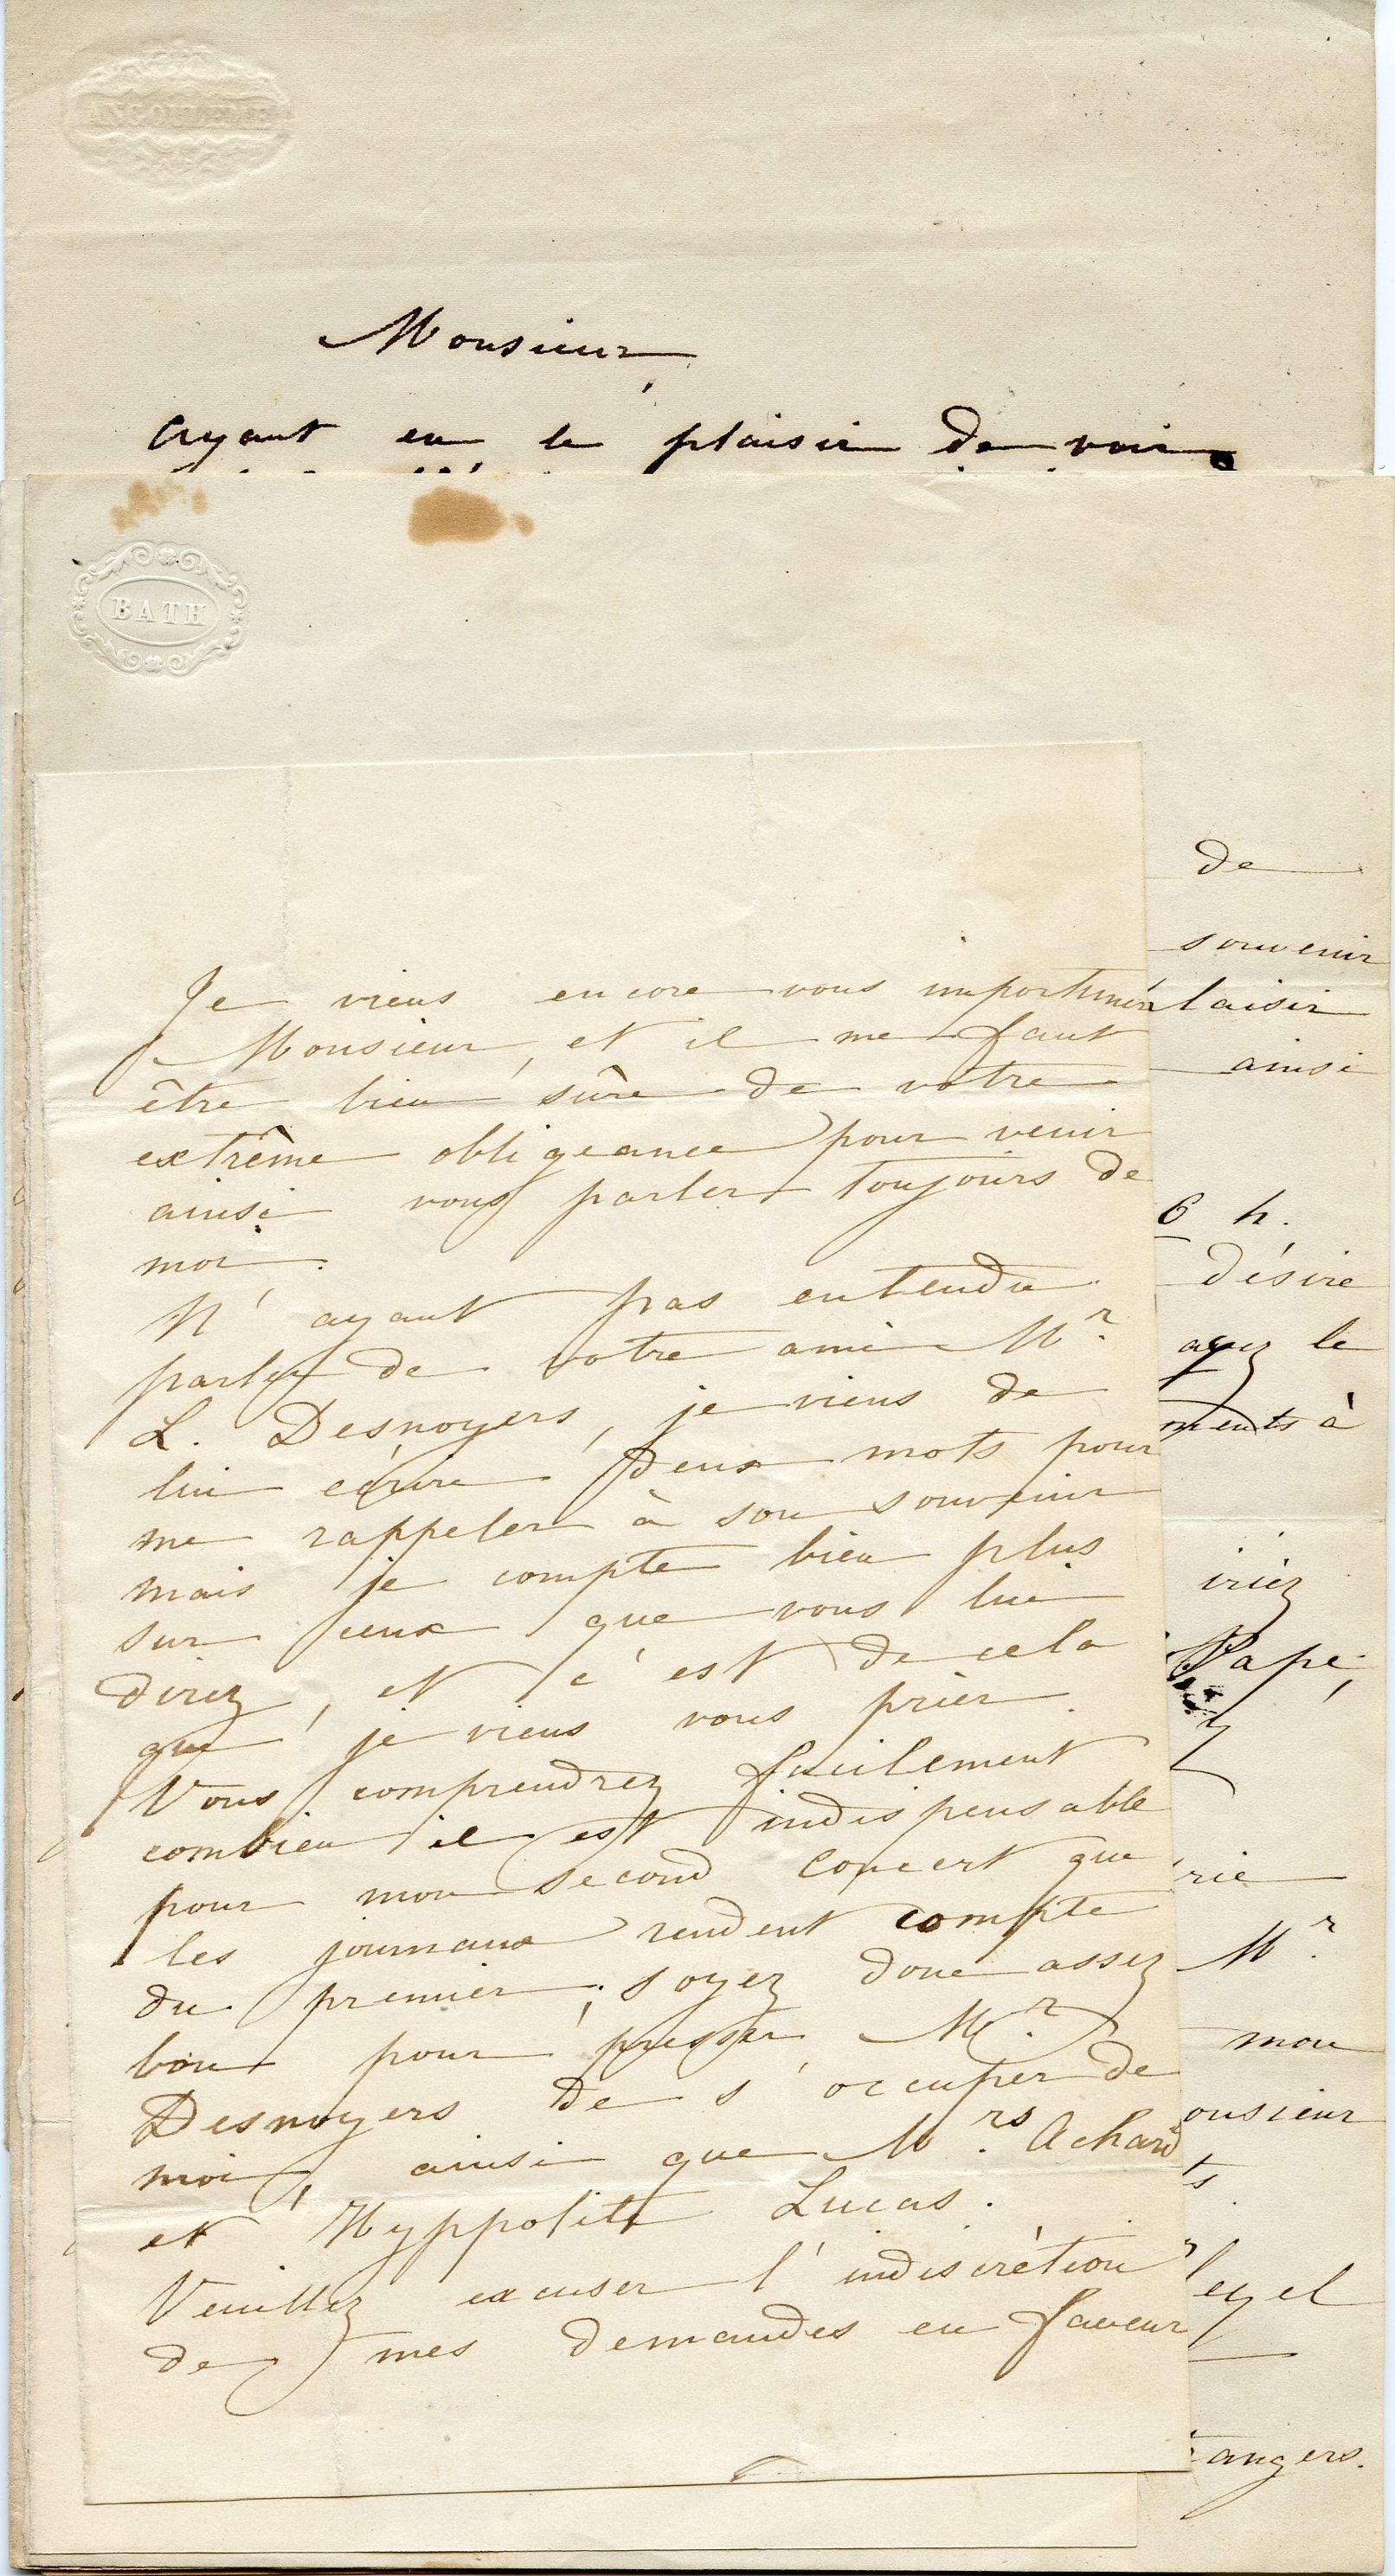 ANGOULEME
Monsieur,
Ayant eu le plaisir de voir
BATH
Je viens encore vous importuner
Monsieur, et il me faut
être bien sûre de votre
extrême obligeance pour venir
ainsi vous parler toujours de
moi.
N'ayant pas entendu
parler de votre ami Mr.
L. Desnoyers, je viens de
lui écrire deux mots pour
me rappeler à son souvenir
mais je compte bien plus
sur ceux que vous lui
direz, et c'est de cela
que je viens vous prier.
Vous comprendrez facilement
combien il est indispensable
pour mon second concert que
les journaux rendent compte
du premier; soyez donc assez
bon pour presser Mr.
Desnoyers de s'occuper de
moi, ainsi que Mrs. Achard
et Hyppolite Lucas.
Veuillez excuser l'indiscrétion
de mes demandes en faveur
de
souvenir
laisir
ainsi
6 h.
désire
ayez le
ments à
iriez
Pape,
rie
Mr.
mon
onsieur
ts.
leyel
angers.